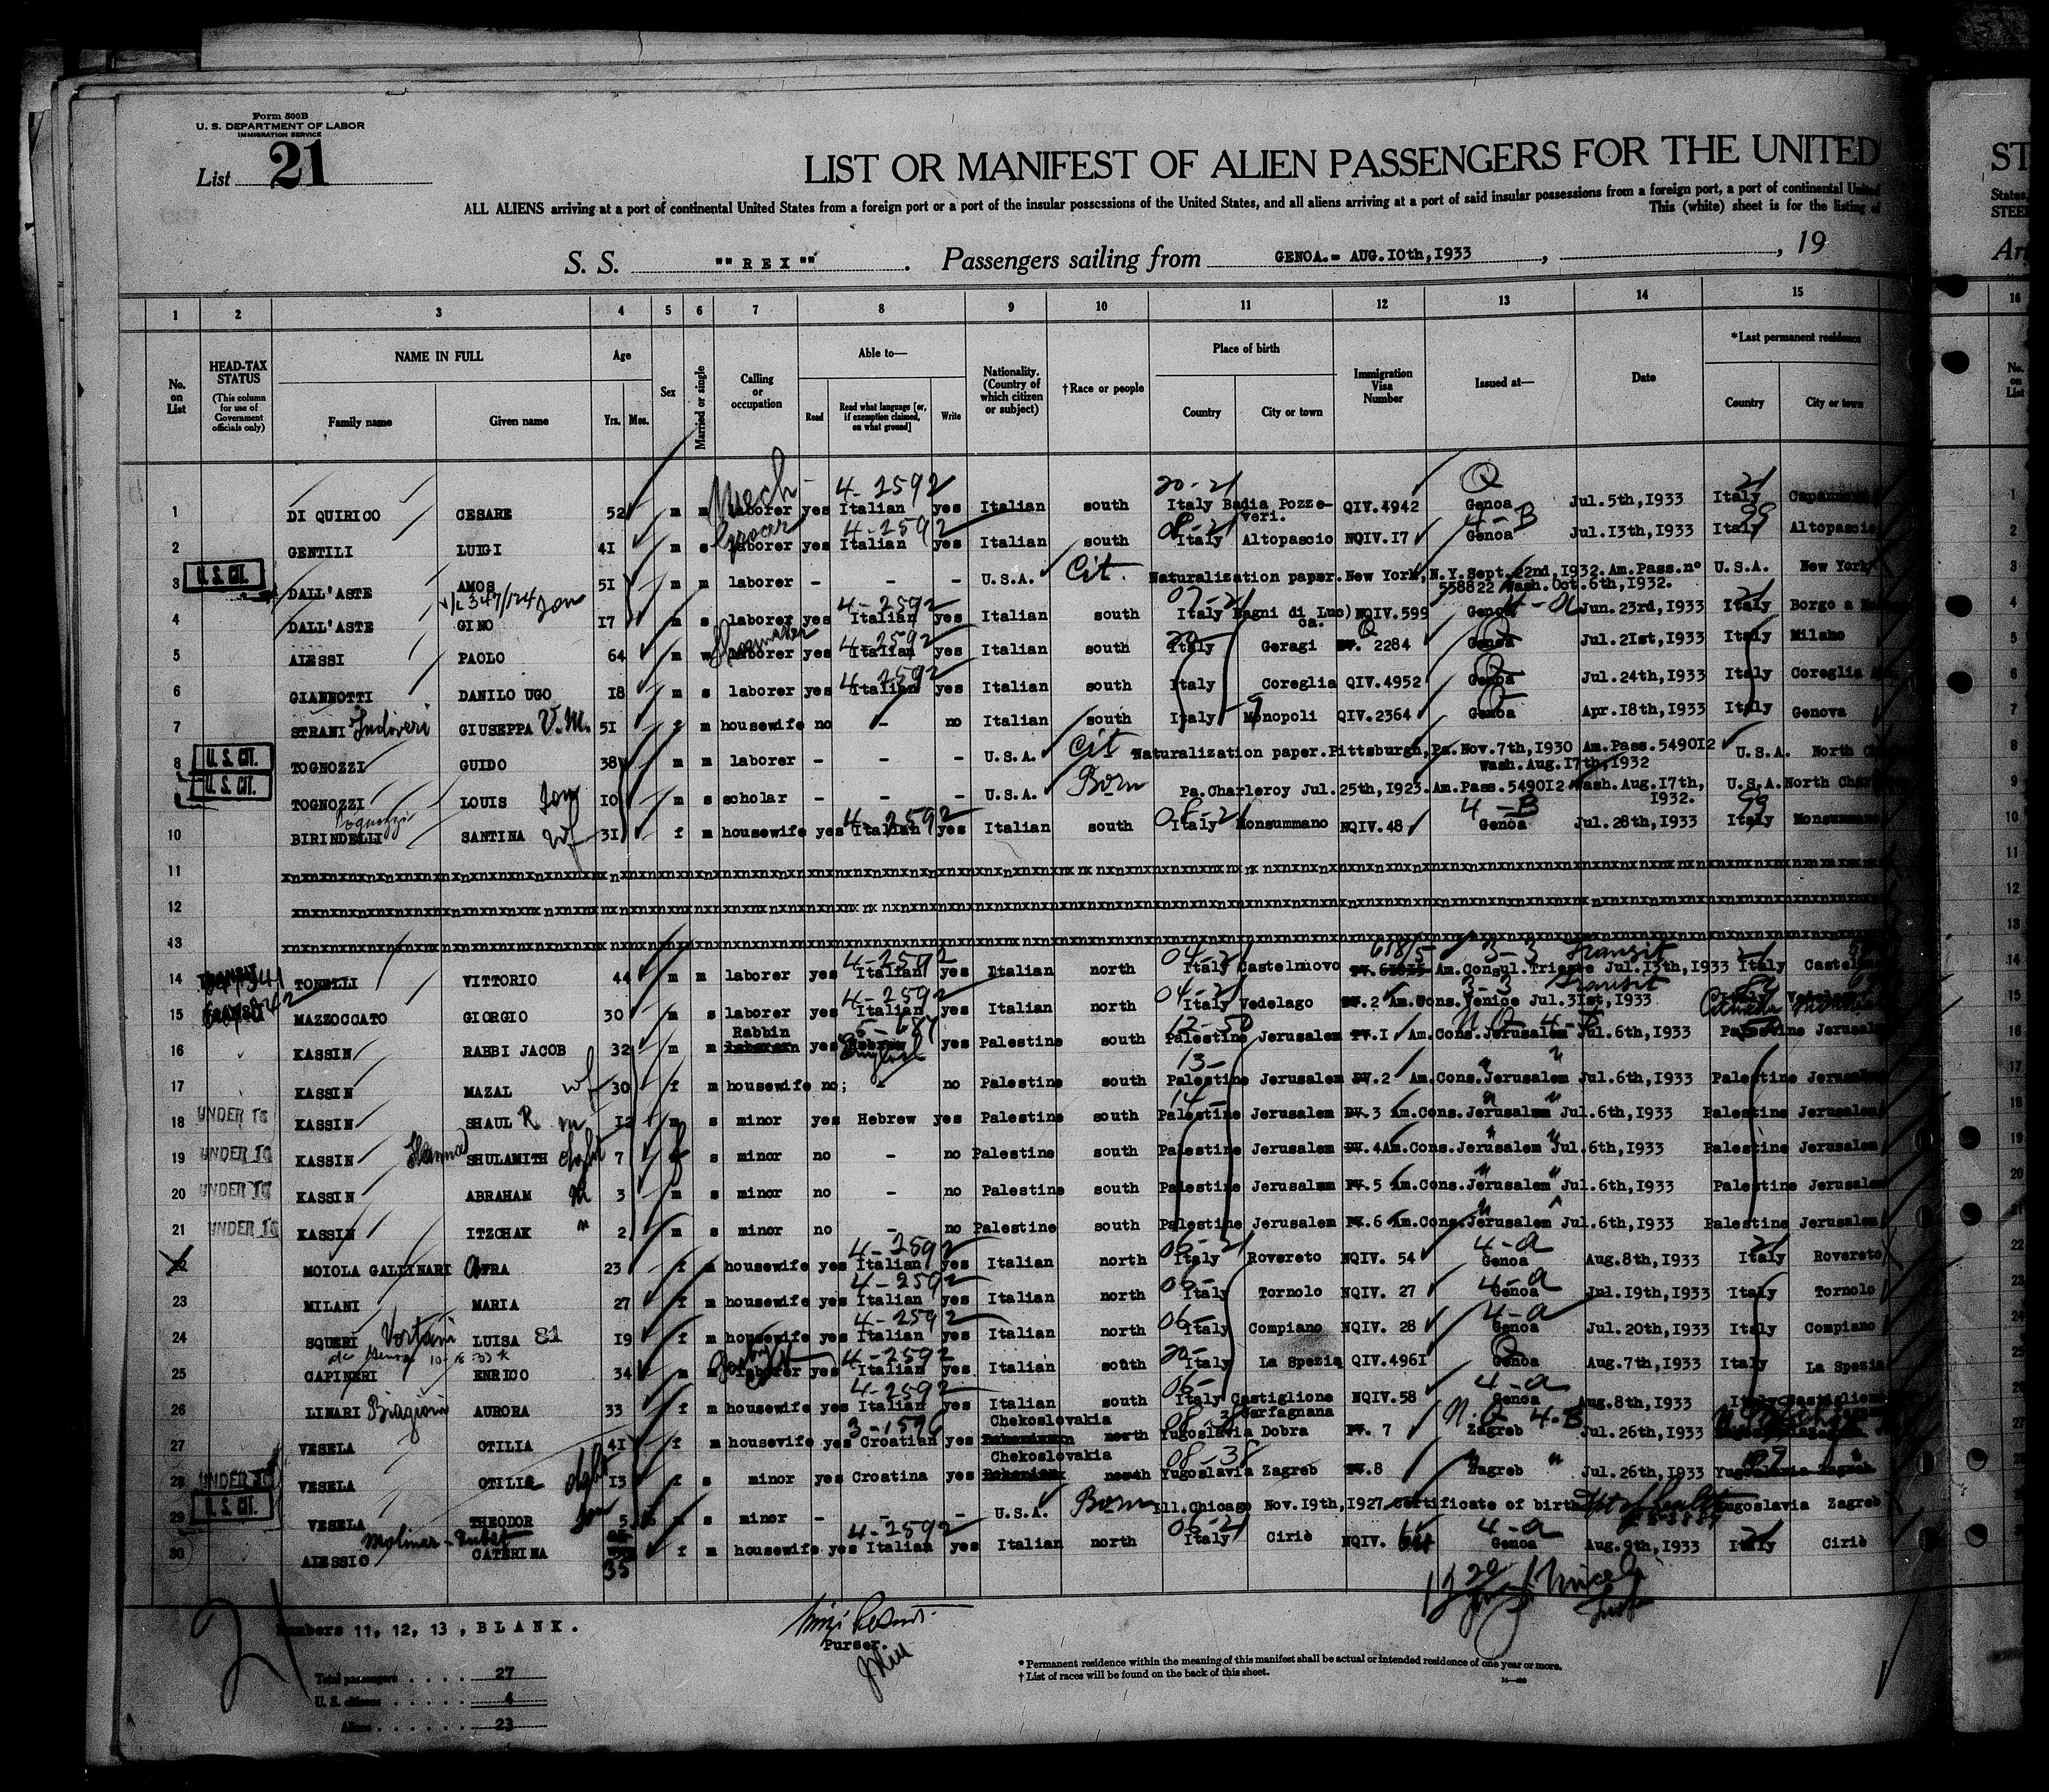 Form 500B
U. S. DEPARTMENT OF LABOR
IMMIGRATION SERVICE
List 21
LIST OR MANIFEST OF ALIEN PASSENGERS FOR THE UNITED
ST
ALL ALIENS arriving at a port of continental United States from a foreign port or a port of the insular possessions of the United States, and all aliens arriving at a port of said insular possessions from a foreign port, a port of continental United
States,
This (white) sheet is for the listing of
STEE
S. S. "" R E X "" . Passengers sailing from GENOA.- AUG.10th,1933 , , 19
Arr
1 2 3 4 5 6 7 8 9 10 11 12 13 14 15 16
No. on List
HEAD-TAX STATUS (This column for use of Government officials only)
NAME IN FULL Family name Given name
Age Yrs. Mos.
Sex
Married or single
Calling or occupation
Able to— Read Read what language [or, if exemption claimed, on what ground] Write
Nationality. (Country of which citizen or subject)
† Race or people
Place of birth Country City or town
Immigration Visa Number
Issued at—
Date
* Last permanent residence Country City or town
No. on List
Mech 4-2592 20-21 Q 21
1 DI QUIRICO CESARE 52 m m laborer yes Italian yes Italian south Italy Badia Pozze- veri. QIV.4942 Genoa Jul.5th,1933 Italy 1
Grocer 4-2592 08-21 4-B 99
2 GENTILI LUIGI 41 m s laborer yes Italian yes Italian south Italy Altopascio NQIV.17 Genoa Jul.13th,1933 Italy Altopascio 2
U. S. CIT.
3 DALL'ASTE AMOS 51 m m laborer - - - U.S.A. Cit. Naturalization paper.New York,N.Y.Sept.22nd,1932.Am.Pass.n° 558822 Wash.Oct.6th,1932. U.S.A. New York 3
son 4-2592 07-21 4-a 21
4 DALL'ASTE GINO 17 m s laborer yes Italian yes Italian south Italy Bagni di Luc) ca. NQIV.599 Genoa Jun.23rd,1933 Italy Borgo a 4
Shoemaker 4-2592 20- Q Q
5 ALESSI PAOLO 64 m w laborer yes Italian yes Italian south Italy Geragi 2284 Genoa Jul.21st,1933 Italy Milano 5
4-2592 Q
6 GIANNOTTI DANILO UGO 18 m s laborer yes Italian yes Italian south Italy Coreglia QIV.4952 Genoa Jul.24th,1933 Italy Coreglia 6
Q
7 STRANI Indiveri GIUSEPPA V.M. 51 f m housewife no - no Italian south Italy Monopoli QIV.2364 Genoa Apr.18th,1933 Italy Genova 7
U. S. CIT.
8 TOGNOZZI GUIDO 38 m m laborer - - - U.S.A. Cit Naturalization paper.Pittsburgh,Pa.Nov.7th,1930 Am.Pass.549012 Wash.Aug.17th,1932 U.S.A. North 8
U. S. CIT.
9 TOGNOZZI LOUIS son 10 m s scholar - - - U.S.A. Born Pa.Charleroy Jul.25th,1923.Am.Pass.549012 Wash.Aug.17th, 1932. U.S.A. North 9
Tognozzi 4-2592 08-21 4-B 99
10 BIRINDELLI SANTINA wf 31 f m housewife yes Italian yes Italian south Italy Monsummano NQIV.48 Genoa Jul.28th,1933 Italy Monsummano 10
11 11
12 12
13 13
4-2592 04-21 618/5 3-3 Transit 21
14 TONELLI VITTORIO 44 m m laborer yes Italian yes Italian north Italy Castelnuovo Am.Consul.Trieste Jul.13th,1933 Italy 14
4-2592 04-21 3-3 Transit
15 MAZZOCCATO GIORGIO 30 m s laborer yes Italian yes Italian north Italy Vedelago PV.2 Am.Cons.Venice Jul.31st,1933 15
Rabbin 12-50 N.Q 4-B
16 KASSIN RABBI JACOB 32 m m laborer yes Hebrew English yes Palestine south Palestine Jerusalem PV.1 Am.Cons.Jerusalem Jul.6th,1933 Palestine Jerusalem 16
13- " "
17 KASSIN MAZAL wf 30 f m housewife no; - no Palestine south Palestine Jerusalem PV.2 Am.Cons.Jerusalem Jul.6th,1933 Palestine Jerusalem 17
UNDER 16 14- " "
18 KASSIN SHAUL R m 12 m s minor yes Hebrew yes Palestine south Palestine Jerusalem PV.3 Am.Cons.Jerusalem Jul.6th,1933 Palestine Jerusalem 18
UNDER 16 " "
19 KASSIN Hanna SHULAMITH daht 7 f s minor no - no Palestine south Palestine Jerusalem PV.4 Am.Cons.Jerusalem Jul.6th,1933 Palestine Jerusalem 19
UNDER 16 " "
20 KASSIN ABRAHAM m 3 m s minor no - no Palestine south Palestine Jerusalem PV.5 Am.Cons.Jerusalem Jul.6th,1933 Palestine Jerusalem 20
UNDER 16 " "
21 KASSIN ITZCHAK " 2 m s minor no - no Palestine south Palestine Jerusalem PV.6 Am.Cons.Jerusalem Jul.6th,1933 Palestine Jerusalem 21
4-2592 06-21 4-a 21
22 MOIOLA GALLINARI AFRA 23 f m housewife yes Italian yes Italian north Italy Rovereto NQIV. 54 Genoa Aug.8th,1933 Italy Rovereto 22
4-2592 06- 4-a
23 MILANI MARIA 27 f m housewife yes Italian yes Italian north Italy Tornolo NQIV. 27 Genoa Jul.19th,1933 Italy Tornolo 23
4-2592 06- 4-a
24 SQUERI LUISA 81 19 f m housewife yes Italian yes Italian north Italy Compiano NQIV. 28 Genoa Jul.20th,1933 Italy Compiano 24
4-2592 20- Q
25 CAPINERI ENRICO 34 m m laborer yes Italian yes Italian south Italy La Spezia QIV.4961 Genoa Aug.7th,1933 Italy La Spezia 25
4-2592 06- 4-a
26 LINARI Biagioni AURORA 33 f m housewife yes Italian yes Italian south Italy Castiglione Garfagnana NQIV.58 Genoa Aug.8th,1933 Italy Castiglione 26
3-1596 Chekoslovakia 08-38 N.Q 4-B
27 VESELA OTILIA 41 f m housewife yes Croatian yes north Yugoslavia Dobra PV. 7 Zagreb Jul.26th,1933 27
UNDER 16 Chekoslovakia 08-38 " " 99
28 VESELA OTILIA daht 13 f s minor yes Croatina yes north Yugoslavia Zagreb PV.8 Zagreb Jul.26th,1933 Yugoslavia Zagreb 28
U. S. CIT.
29 VESELA THEODOR son 5 m s minor - - - U.S.A. Born Ill.Chicago Nov.19th,1927 Certificate of birth Dpt of health Yugoslavia Zagreb
4-2592 06-21 4-a 21
30 ALESSIO CATERINA 35 f m housewife yes Italian yes Italian north Italy Ciriè NQIV. Genoa Aug.9th,1933 Italy Ciriè
21
Numbers 11, 12, 13 , B L A N K .
Purser.
Total passengers . . . . 27
U. S. citizens . . . . . 4
Aliens . . . . . . 23
* Permanent residence within the meaning of this manifest shall be actual or intended residence of one year or more.
† List of races will be found on the back of this sheet.